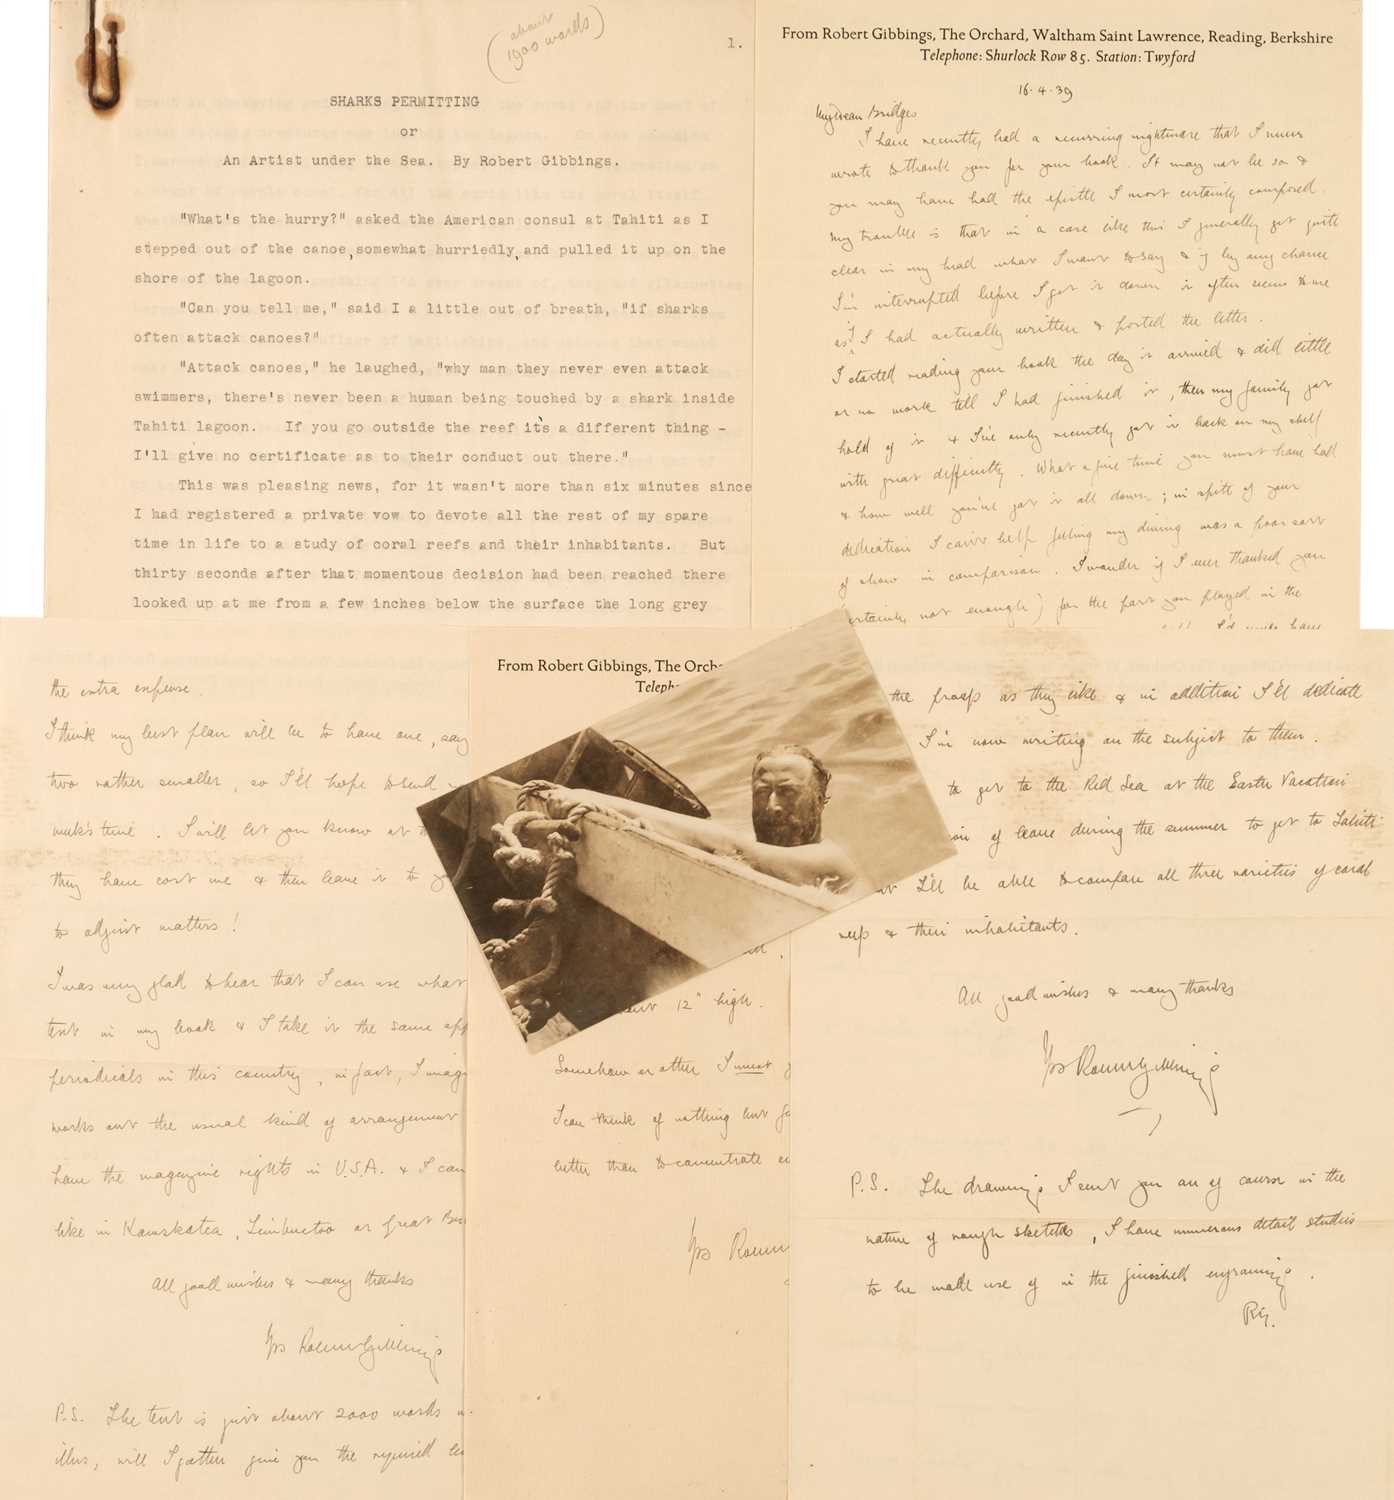 (about
1900 words)
1.
SHARKS PERMITTING
or
An Artist under the Sea. By Robert Gibbings.
"What's the hurry?" asked the American consul at Tahiti as I
stepped out of the canoe, somewhat hurriedly, and pulled it up on the
shore of the lagoon.
"Can you tell me," said I a little out of breath, "if sharks
often attack canoes?"
"Attack canoes," he laughed, "why man they never even attack
swimmers, there's never been a human being touched by a shark inside
Tahiti lagoon. If you go outside the reef it's a different thing -
I'll give no certificate as to their conduct out there."
This was pleasing news, for it wasn't more than six minutes since
I had registered a private vow to devote all the rest of my spare
time in life to a study of coral reefs and their inhabitants. But
thirty seconds after that momentous decision had been reached there
looked up at me from a few inches below the surface the long grey
From Robert Gibbings, The Orchard, Waltham Saint Lawrence, Reading, Berkshire
Telephone: Shurlock Row 85. Station: Twyford
16.4.39
My dear Bridges
I have recently had a recurring nightmare that I never
wrote to thank you for your book. It may not be so &
you may have had the epistle I most certainly composed.
My trouble is that in a case like this I generally get quite
clear in my head what I want to say & if by any chance
I'm interrupted before I get it down it often seems to me
as if I had actually written & posted the letter.
I started reading your book the day it arrived & did little
or no work till I had finished it, then my family got
hold of it & I've only recently got it back on my shelf
with great difficulty. What a fine time you must have had
& how well you've got it all down; in spite of your
dedication I can't help feeling my diving was a poor sort
of show in comparison. I wonder if I ever thanked you
(certainly not enough) for the part you played in the
the extra expense.
I think my best plan will be to have one, say
two rather smaller, so I'll hope to send
week's time. I will let you know at
they have cost me & then leave it to
to adjust matters!
I was very glad to hear that I can use what
text in my book & I take it the same
periodicals in this country, in fact, I
works out the usual kind of arrangement
have the magazine rights in U.S.A. & I can
like in Kamskatca, Timbuctoo or Great
All good wishes & many thanks
Yrs Robert Gibbings
P.S. The text is just about 2000 words
illus, will I gather give you the required
From Robert Gibbings, The Orch
Teleph
12" high.
Somehow or other I must
I can think of nothing but
better than to concentrate
Yrs Robert
the proofs as they like & in addition I'll dedicate
I'm now writing on the subject to them.
to get to the Red Sea at the Easter Vacation
of leave during the summer to get to Tahiti
I'll be able to compare all three varieties of coral
reef & their inhabitants.
All good wishes & many thanks
Yrs Robert Gibbings
P.S. The drawings I sent you are of course in the
nature of rough sketches, I have numerous detail studies
to be made use of in the finished engravings.
R.G.